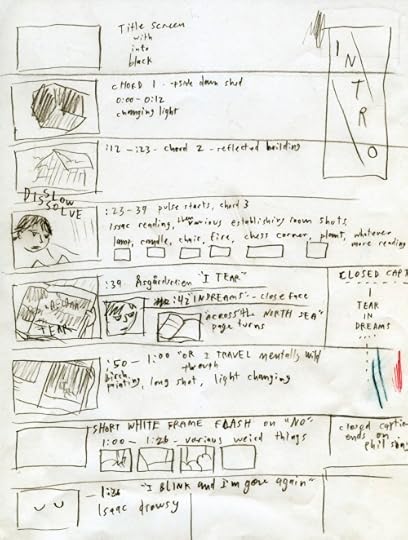 Title Screen
with
into
black
INTRO
CHORD 1 - upside down shed
0:00 - 0:12
changing light
:12 - :23 - chord 2 - reflected building
SLOW
DISSOLVE
:23 - 39 pulse starts, chord 3
Isaac reading, then various establishing room shots,
lamp, candle, chair, fire, chess corner, plant, whatever
more reading
:39 "I TEAR"
TEAR
:42 "IN DREAMS" - close face
"ACROSS the NORTH SEA"
page turns
CLOSED CAPT
I
TEAR
IN
DREAMS
....
:50 - 1:00 "OR I TRAVEL mentally wild
through
birch
painting, long shot, light changing
SHORT WHITE FRAME FLASH on "NO"
1:00 - 1:26 - various weird things
closed caption
ends on
phil song
1:26 "I BLINK and I'm gone again"
Isaac drowsy